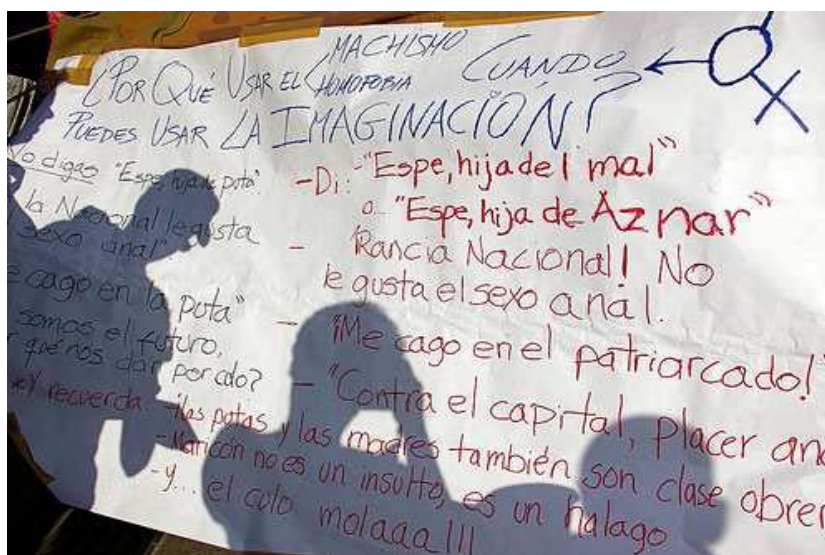 ¿POR QUÉ USAR EL MACHISMO HOMOFOBIA CUANDO
PUEDES USAR LA IMAGINACIÓN?
No digas "Espe, hija de puta"
la Nacional le gusta
sexo anal"
cago en la puta"
somos el futuro,
qué nos dan por culo?
-Di: "Espe, hija del mal"
o "Espe, hija de Aznar"
- Rancia Nacional! No
le gusta el sexo anal.
- ¡Me cago en el patriarcado!"
- "Contra el capital, placer
Y recuerda: -¡las putas y las madres también son clase
-Maricón no es un insulto, es un halago
-y... el culo molaaa!!!